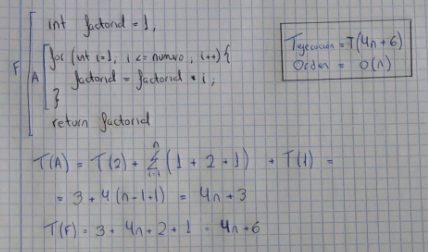 int factorid = 1,
for (int i=1, i <= numero, i++) {
factorid = factorid * i;
}
return factorid
F
A
Tejecucion = T(4n+6)
Orden = O(n)
T(A) = T(2) + Σ (1 + 2 + 1) + T(1) =
= 3 + 4(n-1+1) = 4n + 3
T(F) = 3 + 4n + 2 + 1 = 4n + 6